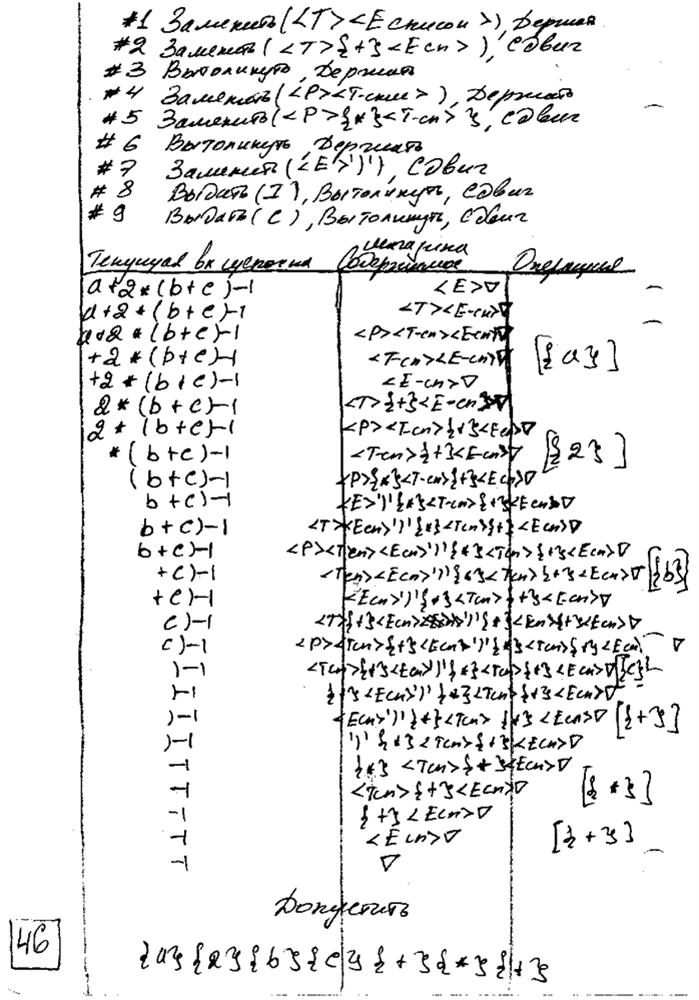 #1 Заменить (<T><E список>), Держать
#2 Заменить (<T>{+}<E сп>), Сдвиг
#3 Вытолкнуть, Держать
#4 Заменить (<P><T-спис>), Держать
#5 Заменить (<P>{*}<T-сп>}, Сдвиг
#6 Вытолкнуть, Держать
#7 Заменить (<E>')'), Сдвиг
#8 Выдать (I), Вытолкнуть, Сдвиг
#9 Выдать (C), Вытолкнуть, Сдвиг
Текущая вх цепочка Содержимое магазина Операция
a+2*(b+c)⊣ <E>∇
a+2*(b+c)⊣ <T><E-сп>∇
a+2*(b+c)⊣ <P><T-сп><E-сп>∇
+2*(b+c)⊣ <T-сп><E-сп>∇ [{a}]
+2*(b+c)⊣ <E-сп>∇
2*(b+c)⊣ <T>{+}<E-сп>∇
2*(b+c)⊣ <P><T-сп>{+}<Eсп>∇
*(b+c)⊣ <T-сп>{+}<E-сп>∇ [{2}]
(b+c)⊣ <P>{*}<T-сп>{+}<Eсп>∇
b+c)⊣ <E>')'{*}<T-сп>{+}<Eсп>∇
b+c)⊣ <T><Eсп>')'{*}<Tсп>{+}<Eсп>∇
b+c)⊣ <P><Tсп><Eсп>')'{*}<Tсп>{+}<Eсп>∇
+c)⊣ <Tсп><Eсп>')'{*}<Tсп>{+}<Eсп>∇ [{b}]
+c)⊣ <Eсп>')'{*}<Tсп>{+}<Eсп>∇
c)⊣ <T>{+}<Eсп>')'{*}<Eсп>{+}<Eсп>∇
c)⊣ <P><Tсп>{+}<Eсп>')'{*}<Tсп>{+}<Eсп> ∇
)⊣ <Tсп>{+}<Eсп>')'{*}<Tсп>{+}<Eсп>∇ [{c}]
)⊣ {+}<Eсп>')'{*}<Tсп>{+}<Eсп>∇
)⊣ <Eсп>')'{*}<Tсп>{+}<Eсп>∇ [{+}]
)⊣ ')'{*}<Tсп>{+}<Eсп>∇
⊣ {*}<Tсп>{*}<Eсп>∇
⊣ <Tсп>{+}<Eсп>∇ [{*}]
⊣ {+}<Eсп>∇
⊣ <Eсп>∇ [{+}]
⊣ ∇
Допустить
46
{a}{2}{b}{c}{+}{*}{+}